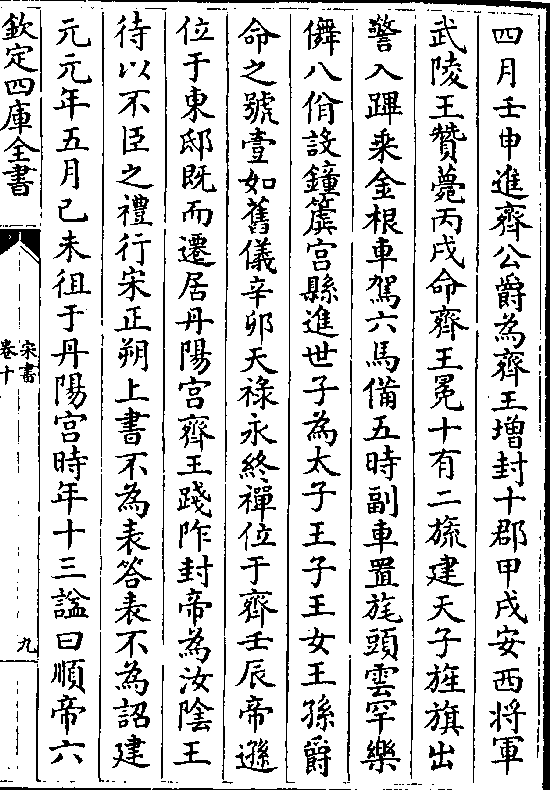 四月壬申進齊公爵為齊王增封十郡甲戌安西將軍
武陵王贊薨丙戌命齊王冕十有二旒建天子旌旗出
警入蹕乘金根車駕六馬備五時副車置旄頭雲罕樂
儛八佾設鐘簴宫縣進世子為太子王子王女王孫爵
命之號壹如舊儀辛卯天祿永終禪位于齊壬辰帝遜
位于東邸既而遷居丹陽宫齊王踐阼封帝為汝陰王
待以不臣之禮行宋正朔上書不為表答表不為詔建
元元年五月己未徂于丹陽宫時年十三諡曰順帝六
欽定四庫全書
宋書
卷十
九